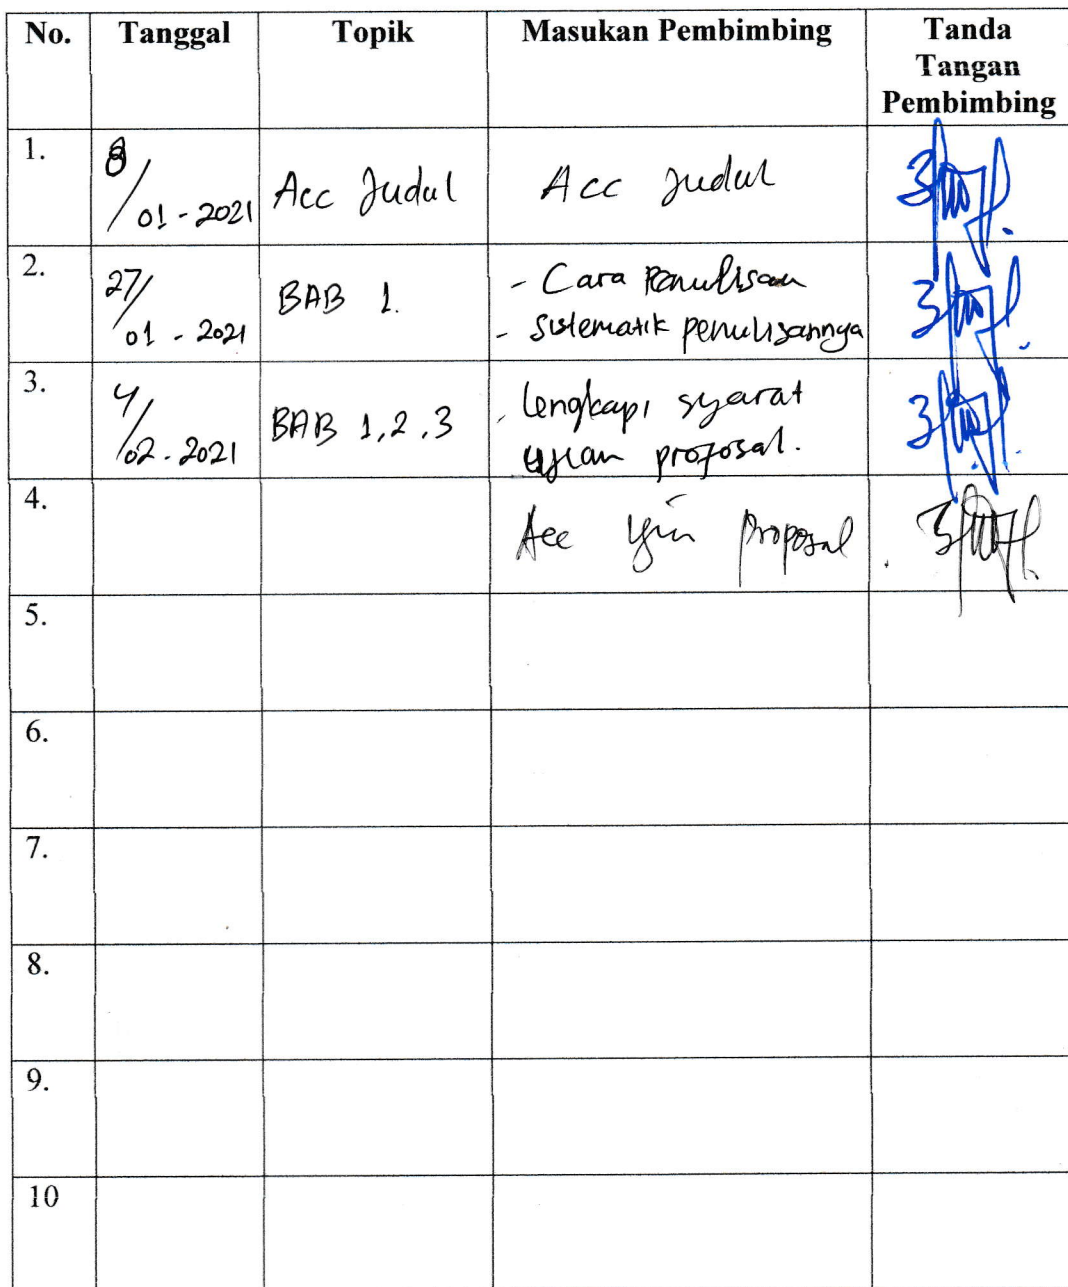 No. Tanggal Topik Masukan Pembimbing Tanda
Tangan
Pembimbing
1. 8/01-2021 Acc Judul Acc Judul
2. 27/01-2021 BAB 1. - Cara Penulisan
- Sistematik penulisannya
3. 4/02-2021 BAB 1,2,3 - Lengkapi syarat
ujian proposal.
4. Acc Proposal
5.
6.
7.
8.
9.
10